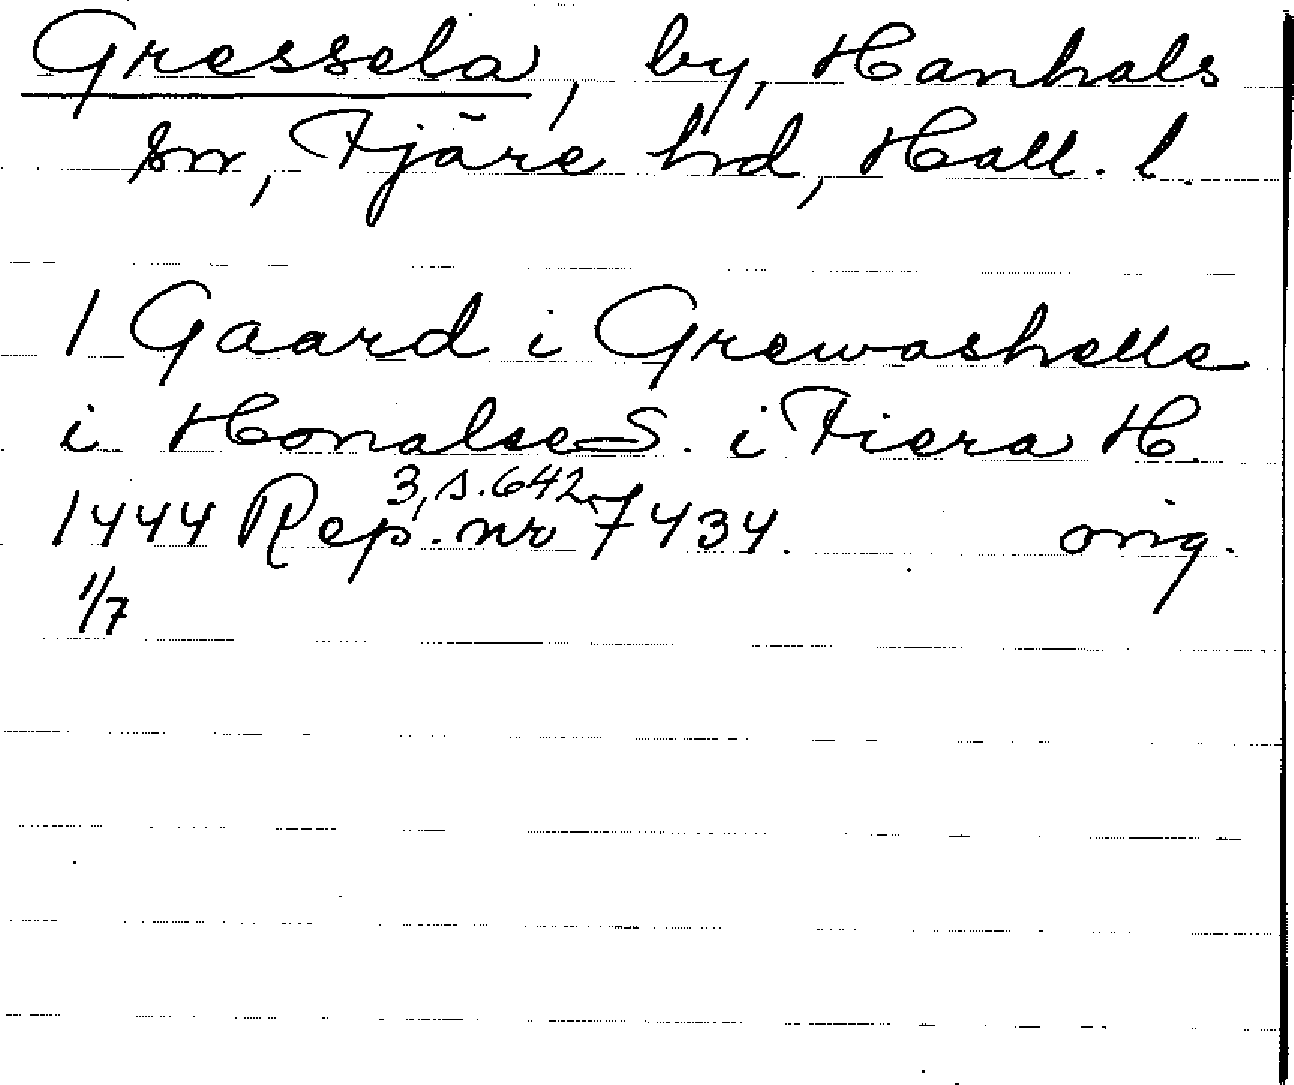 Gressela, by, Hanhals
sn, Fjäre hd, Hall. l.
1 Gaard i Grewashelle
i Honalse S. i Fiera H.
3, s. 642
1444 Rep. nr 7434. orig.
1/7